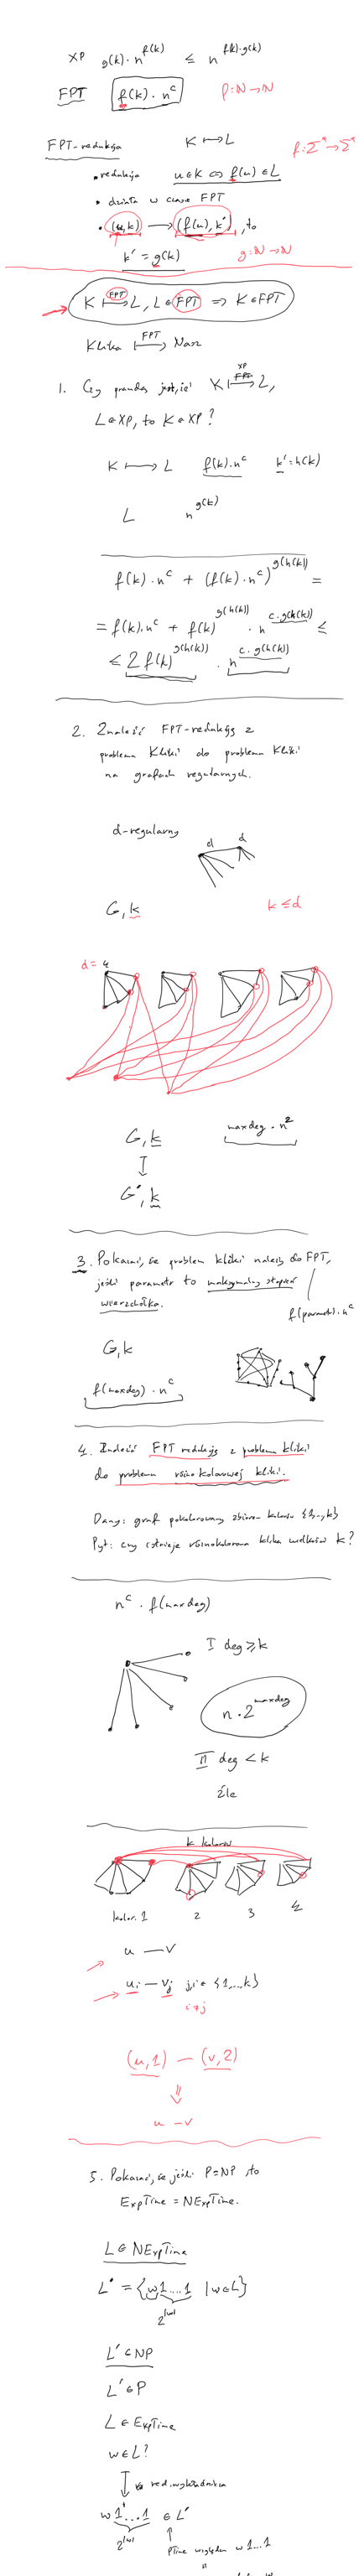 XP g(k)·n^{f(k)} ≤ n^{f(k)·g(k)}
FPT f(k)·n^c p:ℕ→ℕ
FPT-redukcja K ⟼ L f:Σ*→Σ*
• redukcja u∈K ⇔ f(u)∈L
• działa w czasie FPT
• (u,k) ⟶ (f(u),k'), to
k' = g(k) g:ℕ→ℕ
K ⟼^{FPT} L, L∈FPT ⇒ K∈FPT
Klika ⟼^{FPT} Nasz
1. Czy prawdą jest, że K ⟼^{XP} L,
L∈XP, to K∈XP?
K ⟼ L f(k)·n^c k'=h(k)
L n^{g(k)}
f(k)·n^c + (f(k)·n^c)^{g(h(k))} =
= f(k)·n^c + f(k)^{g(h(k))} · n^{c·g(h(k))} ≤
≤ 2f(k)^{g(h(k))} · n^{c·g(h(k))}
2. Znaleźć FPT-redukcję z
problemu Kliki do problemu Kliki
na grafach regularnych.
d-regularny d d
G,k k≤d
d=4
G,k maxdeg·n²
↧
G',k
3. Pokazać, że problem kliki należy do FPT,
jeśli parametr to maksymalny stopień
wierzchołka.
f(parametr)·n^c
G,k
f(maxdeg)·n^c
4. Znaleźć FPT redukcję z problemu kliki
do problemu różnokolorowej kliki.
Dany: graf pokolorowany zbiorem kolorów {1,..,k}
Pyt: czy istnieje różnokolorowa klika wielkości k?
n^c · f(maxdeg)
I deg ≥ k
n·2^{maxdeg}
II deg < k
źle
k kolorów
kolor. 1 2 3 4
u — v
u_i — v_j j,i∈{1,...,k}
i≠j
(u,1) — (v,2)
⇓
u — v
5. Pokazać, że jeśli P=NP, to
ExpTime = NExpTime.
L∈NExpTime
L' = {w1...1 | w∈L}
2^{|w|}
L'∈NP
L'∈P
L∈ExpTime
w∈L?
↧ red. wykładnicza
w1...1 ∈ L'
2^{|w|} ↑
PTime względem w1...1